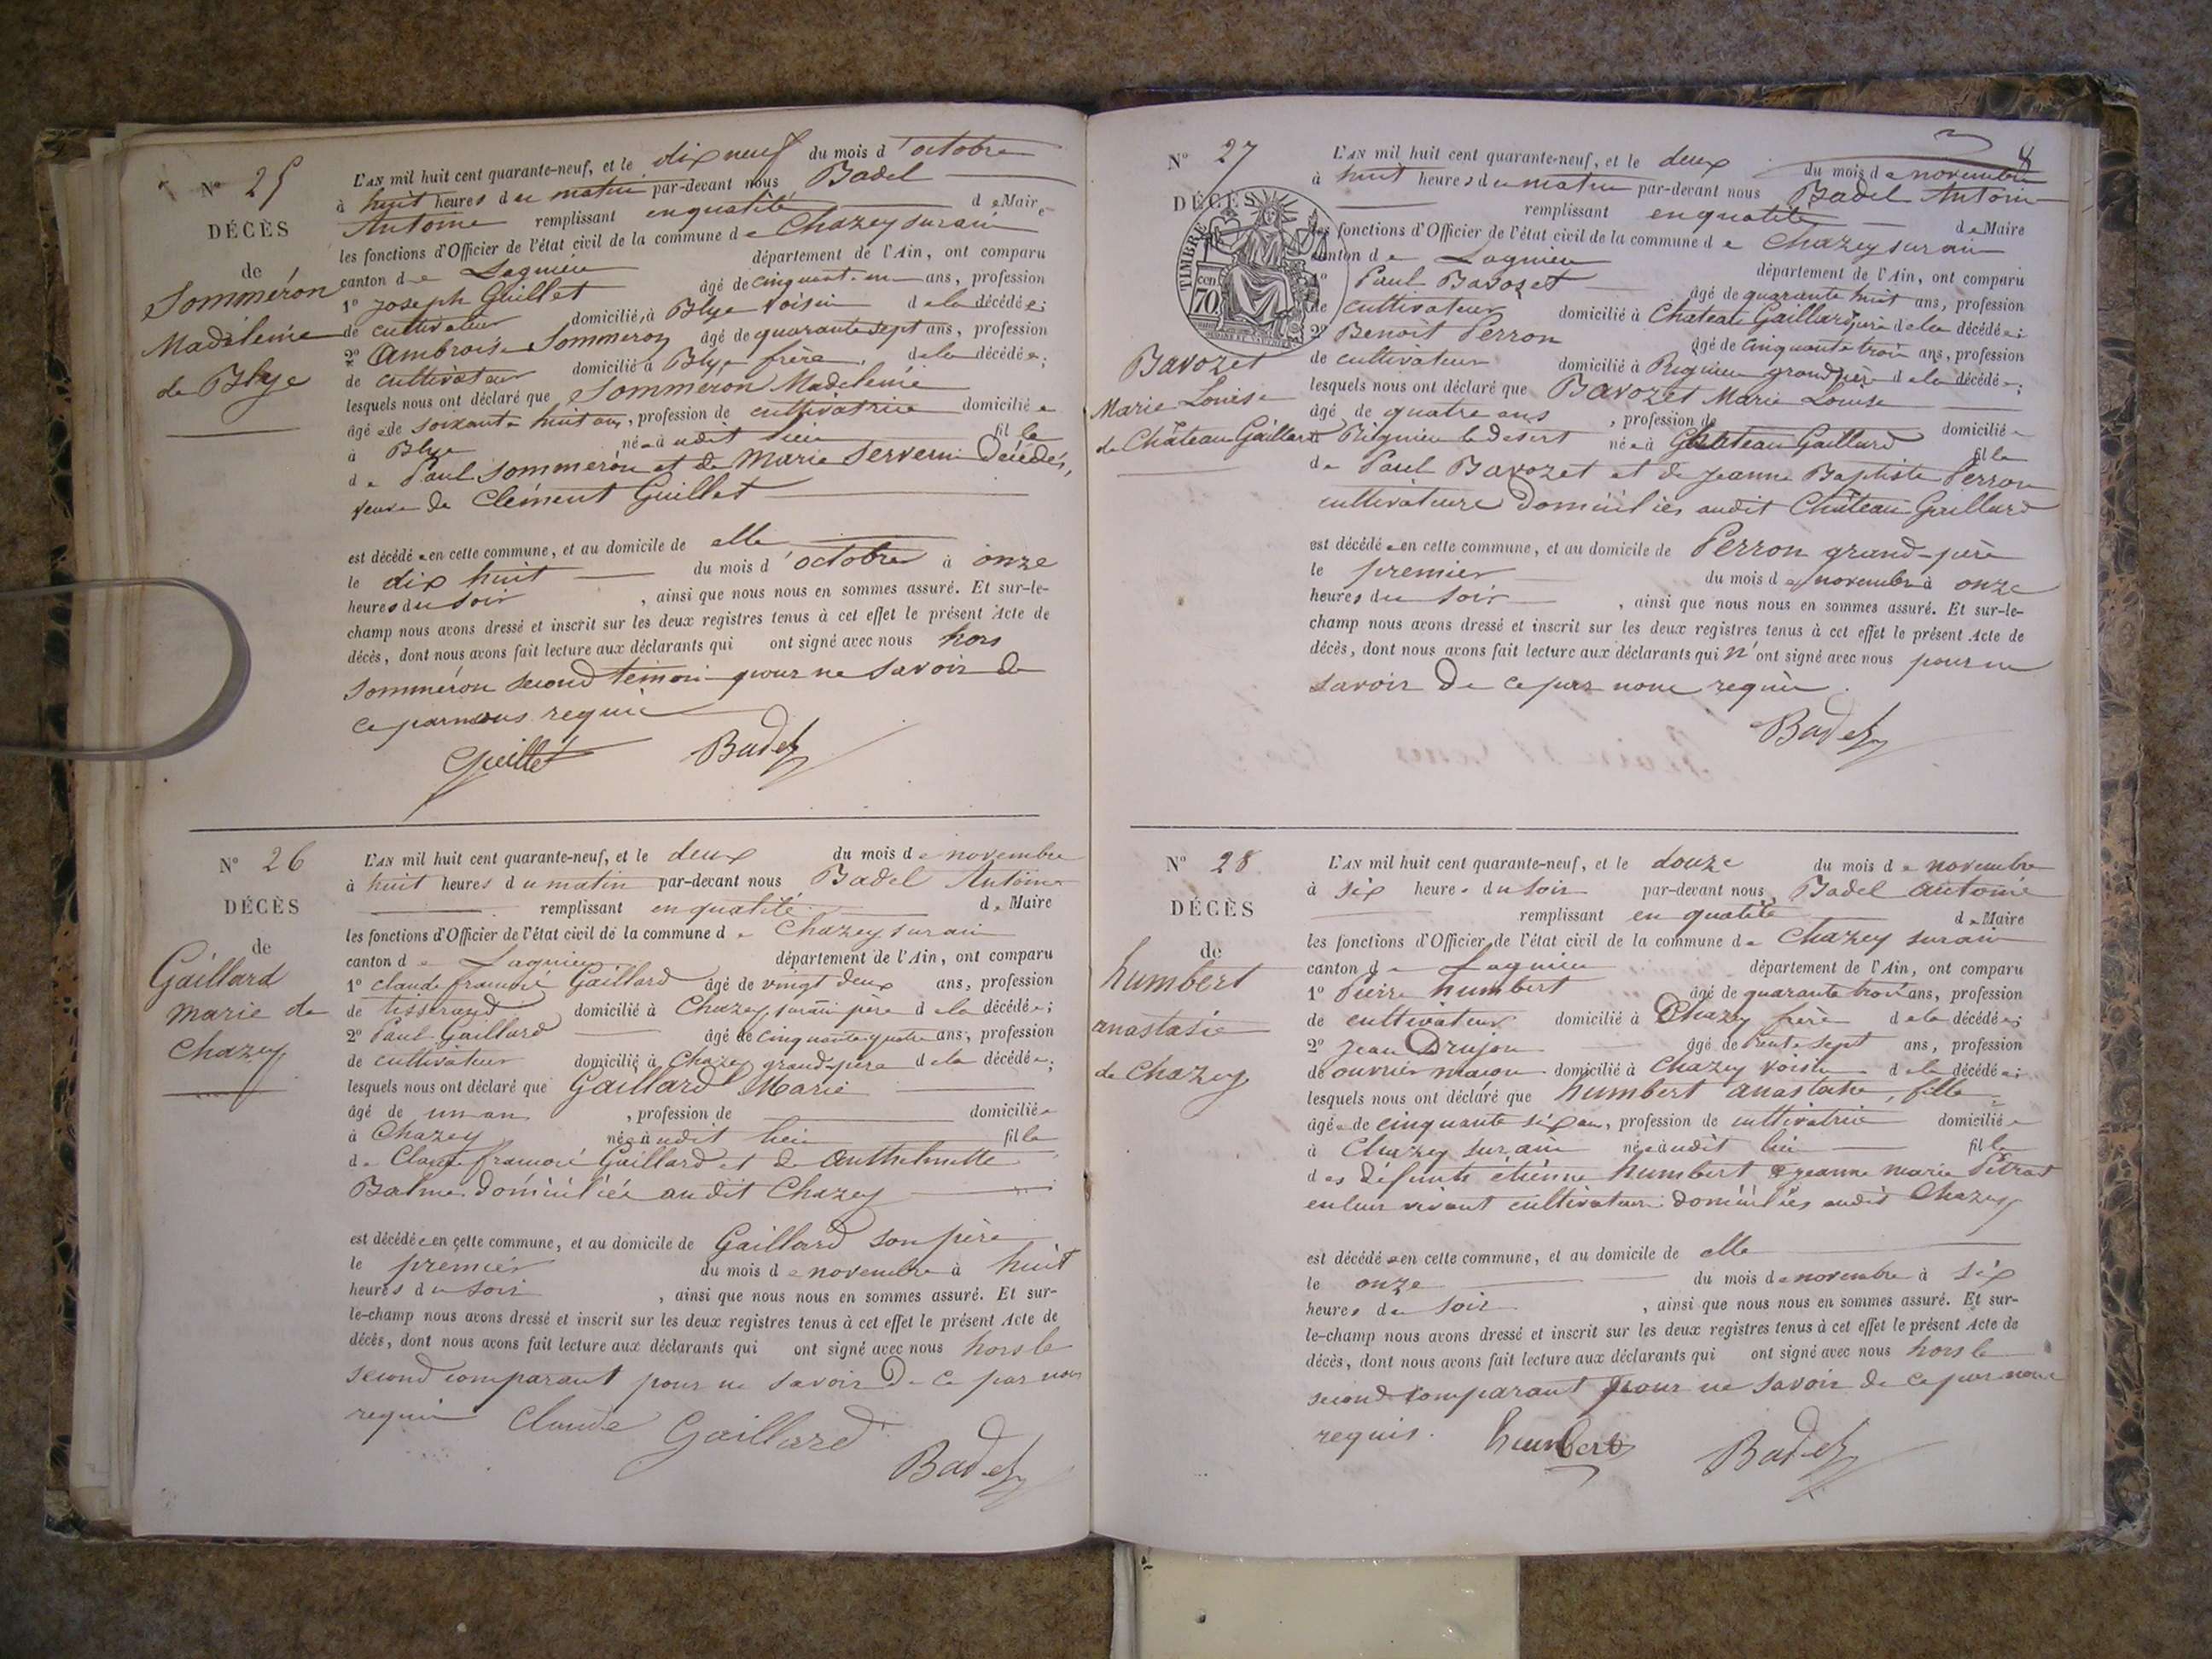 N° 25
DÉCÈS
de
Sommeron
Madeleine
de Blye
L'AN mil huit cent quarante-neuf, et le dix neuf du mois d'octobre
à huit heures du matin par-devant nous Badel
Antoine remplissant en qualité de Maire
les fonctions d'Officier de l'état civil de la commune de Chazey sur ain
canton de Lagnieu département de l'Ain, ont comparu
1° Joseph Guillet âgé de cinquante un ans, profession
de cultivateur domicilié à Blye voisin de la décédée;
2° Ambroise Sommeron âgé de quarante sept ans, profession
de cultivateur domicilié à Blye frère de la décédée;
lesquels nous ont déclaré que Sommeron Madeleine
âgée de soixante huit ans, profession de cultivatrice domiciliée
à Blye née audit lieu fille
de Paul Sommeron et de Marie Servern Décédés,
veuve de Clément Guillet
est décédée en cette commune, et au domicile de elle
le dix huit du mois d'octobre à onze
heures du soir, ainsi que nous nous en sommes assuré. Et sur-le-
champ nous avons dressé et inscrit sur les deux registres tenus à cet effet le présent Acte de
décès, dont nous avons fait lecture aux déclarants qui ont signé avec nous hors
Sommeron second témoin pour ne savoir de
ce par nous requis
Guillet Badel
N° 26
DÉCÈS
de
Gaillard
Marie de
Chazey
L'AN mil huit cent quarante-neuf, et le deux du mois de novembre
à huit heures du matin par-devant nous Badel Antoine
remplissant en qualité de Maire
les fonctions d'Officier de l'état civil de la commune de Chazey sur ain
canton de Lagnieu département de l'Ain, ont comparu
1° Claude françois Gaillard âgé de vingt deux ans, profession
de tisserand domicilié à Chazey sur ain père de la décédée;
2° Paul Gaillard âgé de cinquante quatre ans, profession
de cultivateur domicilié à Chazey grand-père de la décédée;
lesquels nous ont déclaré que Gaillard Marie
âgé de un an, profession de domiciliée
à Chazey née audit lieu fille
de Claude françois Gaillard et de Anthelmette
Balme domiciliés audit Chazey
est décédée en cette commune, et au domicile de Gaillard son père
le premier du mois de novembre à huit
heures du soir, ainsi que nous nous en sommes assuré. Et sur-
le-champ nous avons dressé et inscrit sur les deux registres tenus à cet effet le présent Acte de
décès, dont nous avons fait lecture aux déclarants qui ont signé avec nous hors le
second comparant pour ne savoir De ce par nous
requis Claude Gaillard
Badel
8
N° 27
DÉCÈS
TIMBRE
70
Bavozet
Marie Louise
de Château Gaillard
L'AN mil huit cent quarante-neuf, et le deux du mois de novembre
à huit heures du matin par-devant nous Badel Antoine
remplissant en qualité de Maire
les fonctions d'Officier de l'état civil de la commune de Chazey sur ain
canton de Lagnieu département de l'Ain, ont comparu
1° Paul Bavozet âgé de quarante huit ans, profession
de cultivateur domicilié à Chateau Gaillard père de la décédée;
2° Benoit Perron âgé de cinquante trois ans, profession
de cultivateur domicilié à Rignieu grand père de la décédée;
lesquels nous ont déclaré que Bavozet Marie Louise
âgé de quatre ans, profession de domiciliée
Rignieu le desert née à Château Gaillard fille
de Paul Bavozet et de Jeanne Baptiste Perron
cultivateurs Domiciliés audit Château Gaillard
est décédée en cette commune, et au domicile de Perron grand-père
le premier du mois de novembre à onze
heures du soir, ainsi que nous nous en sommes assuré. Et sur-le-
champ nous avons dressé et inscrit sur les deux registres tenus à cet effet le présent Acte de
décès, dont nous avons fait lecture aux déclarants qui n'ont signé avec nous pour ne
savoir De ce par nous requis.
Badel
N° 28
DÉCÈS
de
humbert
anastasie
de Chazey
L'AN mil huit cent quarante-neuf, et le douze du mois de novembre
à six heures du soir par-devant nous Badel Antoine
remplissant en qualité de Maire
les fonctions d'Officier de l'état civil de la commune de Chazey sur ain
canton de Lagnieu département de l'Ain, ont comparu
1° Pierre humbert âgé de quarante trois ans, profession
de cultivateur domicilié à Chazey frère de la décédée;
2° Jean Drujon âgé de trente sept ans, profession
de ouvrier maçon domicilié à Chazey voisin de la décédée;
lesquels nous ont déclaré que humbert anastasie, fille
âgée de cinquante six ans, profession de cultivatrice domiciliée
à Chazey sur ain née audit lieu fille
des Défunts étienne humbert & jeanne marie Pétrat
en leur vivant cultivateurs domiciliés audit Chazey
est décédée en cette commune, et au domicile de elle
le onze du mois de novembre à six
heures du soir, ainsi que nous nous en sommes assuré. Et sur-
le-champ nous avons dressé et inscrit sur les deux registres tenus à cet effet le présent Acte de
décès, dont nous avons fait lecture aux déclarants qui ont signé avec nous hors le
second comparant pour ne savoir de ce par nous
requis. humbert Badel